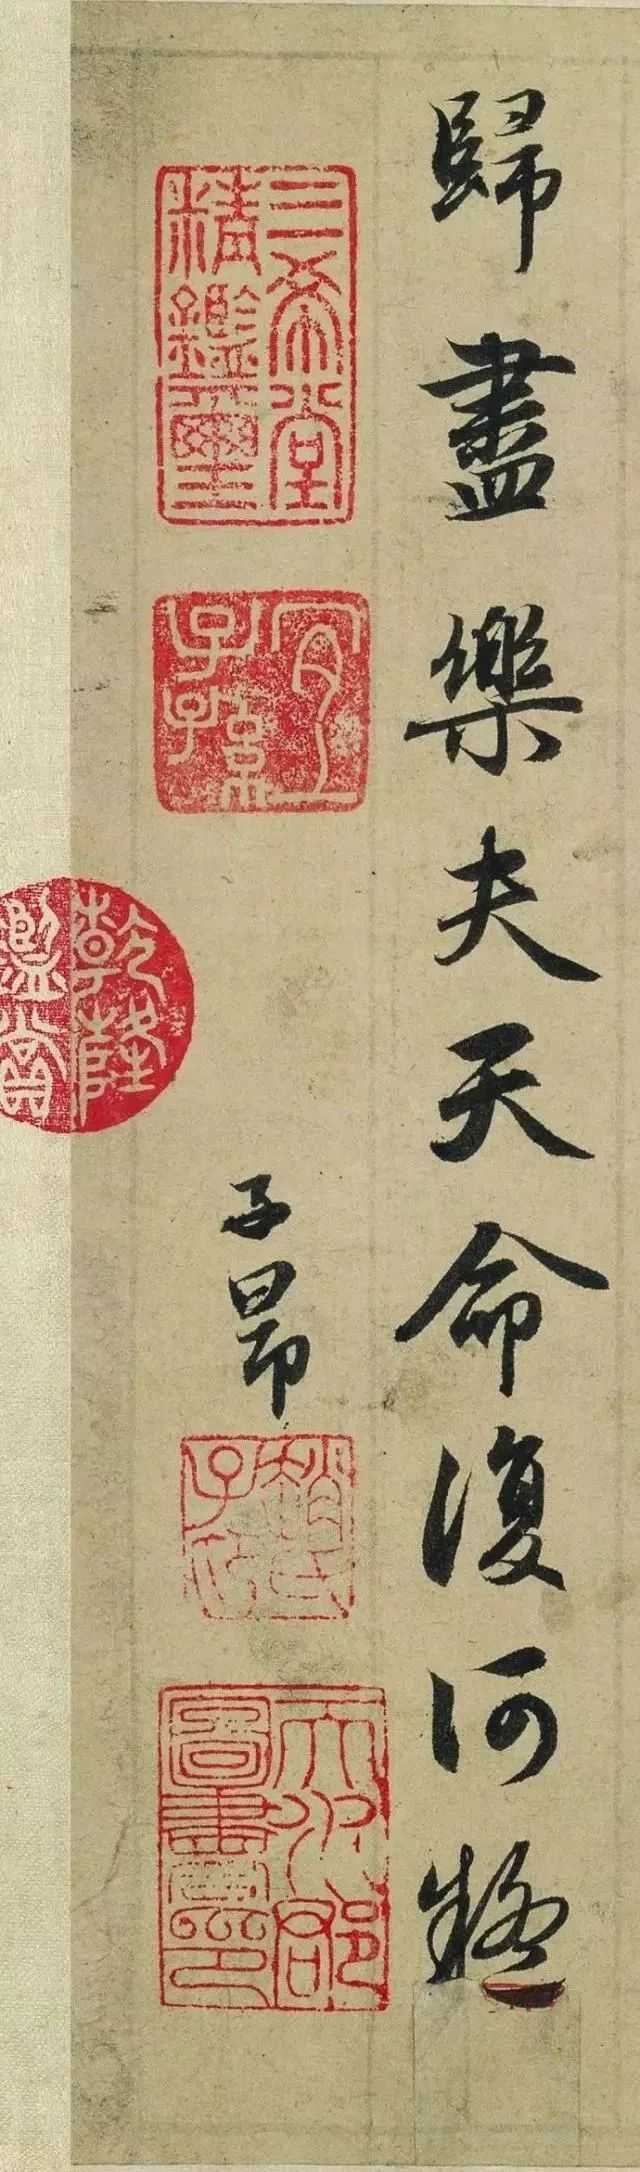 歸盡樂夫天命復何疑
三希堂精鑑璽
宜子孫
子昂
趙氏子昂
天水郡圖書印
乾隆鑑賞